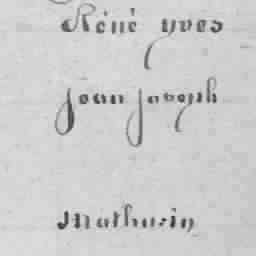 René yves
jean joseph
Mathurin